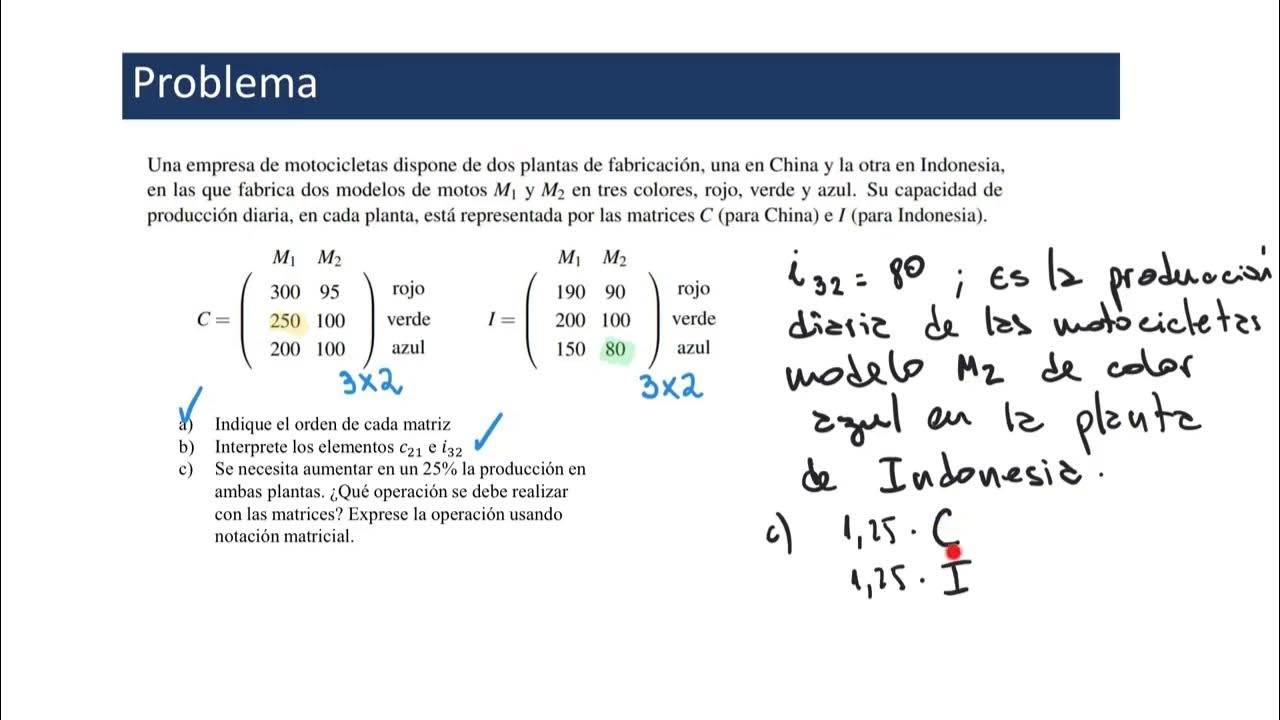 Problema
Una empresa de motocicletas dispone de dos plantas de fabricación, una en China y la otra en Indonesia,
en las que fabrica dos modelos de motos M₁ y M₂ en tres colores, rojo, verde y azul. Su capacidad de
producción diaria, en cada planta, está representada por las matrices C (para China) e I (para Indonesia).
M₁ M₂
300 95 rojo
C = 250 100 verde
200 100 azul
3x2
M₁ M₂
190 90 rojo
I = 200 100 verde
150 80 azul
3x2
a) Indique el orden de cada matriz
b) Interprete los elementos c₂₁ e i₃₂
c) Se necesita aumentar en un 25% la producción en
ambas plantas. ¿Qué operación se debe realizar
con las matrices? Exprese la operación usando
notación matricial.
i₃₂ = 80 ; Es la producción
diaria de las motocicletas
modelo M2 de color
azul en la planta
de Indonesia.
c) 1,25 · C
1,25 · I